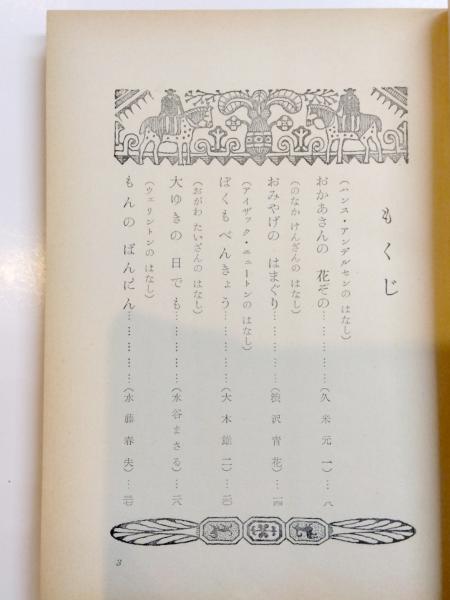 もくじ
(ハンス・アンデルセンの はなし)
おかあさんの 花ぞの…………(久米元一)…八
(のなか けんざんの はなし)
おみやげの はまぐり…………(渋沢青花)…一四
(アイザック・ニュートンの はなし)
ぼくもべんきょう…………(大木雄二)…
(おがわ たいざんの はなし)
大ゆきの 日でも…………(水谷まさる)…
(ウェリントンの はなし)
もんの ばんにん…………(水藤春夫)…
3